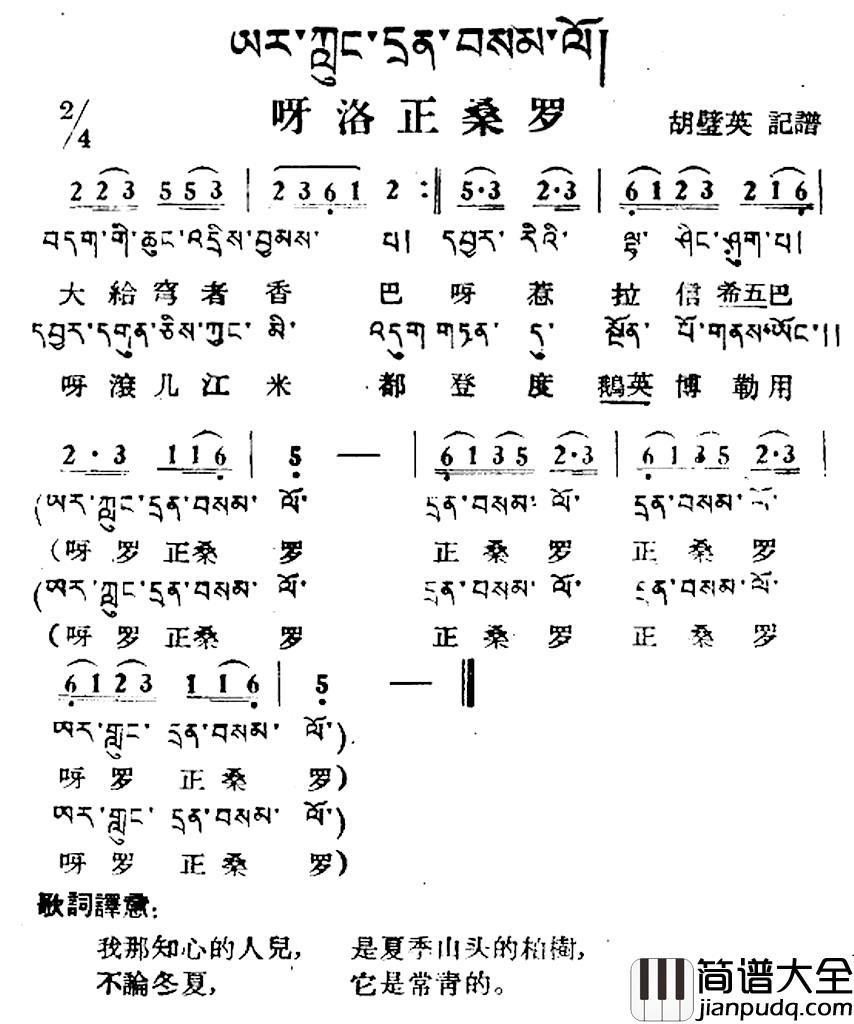 ཨར་ཀླུང་དྲན་བསམ་ལོ།
2/4 呀洛正桑罗 胡璧英 記譜
2 2 3 5 5 3 | 2 3 6 1 2 :‖ 5·3 2·3 | 6 1 2 3 2 1 6 |
བདག་གི་ཆུང་འདྲིས་བྱམས་ པ། དབྱར་ རིའི་ ལྟ་ ཤིང་ཤུག་པ།
大給穹者香 巴呀惹 拉信希五巴
དབྱར་དགུན་ཅིས་ཀྱང་མི་ འདུག གཏན་ དུ་ སྔོན་ པོ་གནས་ཡོང་།།
呀滾几江米 都登度 鵝英博勒用
2·3 1 1 6 | 5 — | 6 1 3 5 2·3 | 6 1 3 5 2·3 |
(ཨར་ཀླུང་དྲན་བསམ་ ལོ་ དྲན་བསམ་ ལོ་ དྲན་བསམ་ ལོ་
(呀罗正桑罗 正桑罗 正桑罗
(ཨར་ཀླུང་དྲན་བསམ་ ལོ་ དྲན་བསམ་ ལོ་ དྲན་བསམ་ ལོ་
(呀罗正桑罗 正桑罗 正桑罗
6 1 2 3 1 1 6 | 5 — ‖
ཨར་ཀླུང་ དྲན་བསམ་ ལོ་)
呀罗 正桑 罗)
ཨར་ཀླུང་ དྲན་བསམ་ ལོ་)
呀罗 正桑 罗)
歌詞譯意:
我那知心的人兒, 是夏季山头的柏樹,
不論冬夏, 它是常青的。
简谱大全
jianpudq.com